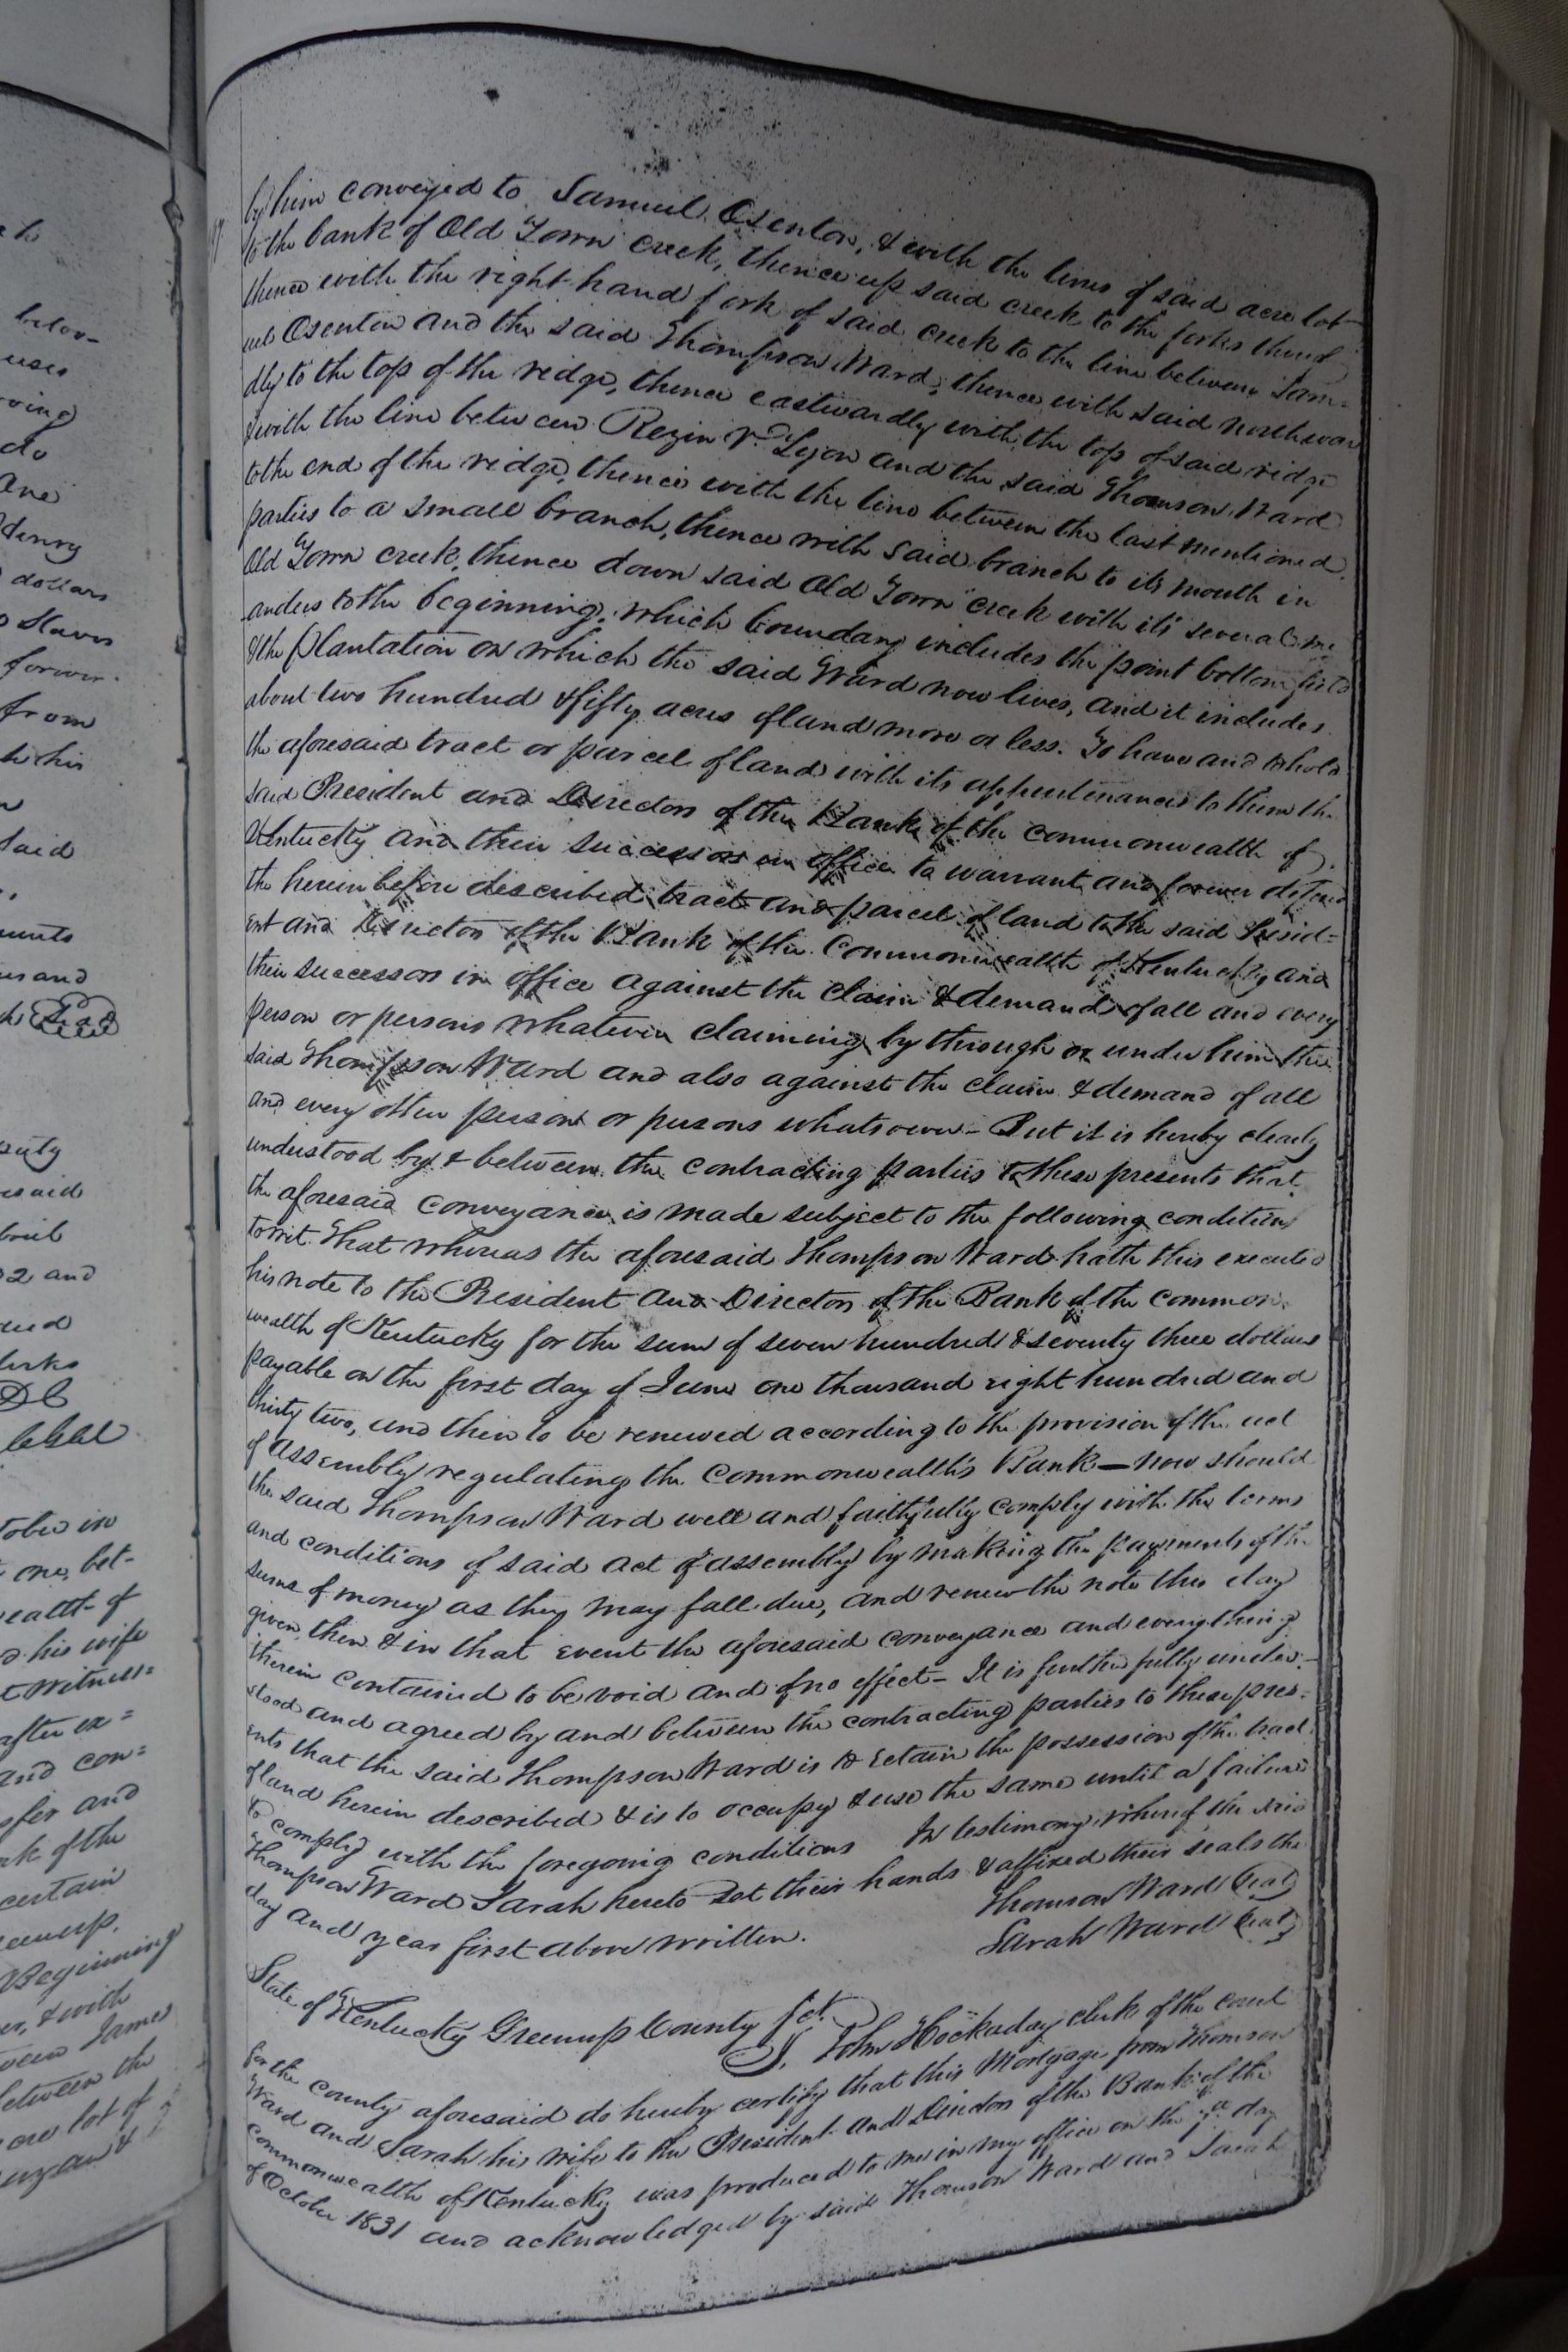 by him conveyed to Samuel Osenton, & with the lines of said acre lot
to the bank of Old Town creek, thence up said creek to the forks thereof
thence with the right hand fork of said creek to the line between Sam=
uel Osenton and the said Thompson Ward, thence with said northwar
dly to the top of the ridge, thence eastwardly with the top of said ridge
& with the line between Rezin r.D Lyon and the said Thomson Ward
to the end of the ridge, thence with the line between the last mentioned
parties to a small branch, thence with said branch to its mouth in
Old Town creek, thence down said Old Town creek with its several me
anders to the beginning, which boundary includes the point bottom field
& the Plantation on which the said Ward now lives, and it includes
about two hundred & fifty acres of land more or less. To have and to hold
the aforesaid tract or parcel of land with its appurtenances to them the
said President and Directors of the Bank of the commonwealth of
Kentucky and their successors in office to warrant and forever defend
the herein before described tract and parcel of land to the said Presid=
ent and Directors of the Bank of the Commonwealth of Kentucky and
their successors in office against the claim & demand of all and every
person or persons whatever claiming by through or under him the
said Thompson Ward and also against the claim & demand of all
and every other person or persons whatsoever - But it is hereby clearly
understood by & between the contracting parties to these presents that
the aforesaid conveyance is made subject to the following conditions
to wit. That whereas the aforesaid Thompson Ward hath this executed
his note to the President and Directors of the Bank of the common
wealth of Kentucky for the sum of seven hundred & seventy three dollars
payable on the first day of June one thousand eight hundred and
thirty two, and then to be renewed according to the provision of the act
of assembly regulating the Commonwealth's Bank — now should
the said Thompson Ward well and faithfully comply with the terms
and conditions of said act of assembly by making the payments of the
sums of money as they may fall due, and renew the note this day
given, then & in that event the aforesaid conveyance and every thing
therein contained to be void and of no effect - It is further fully under=
stood and agreed by and between the contracting parties to these pres=
ents that the said Thompson Ward is to retain the possession of the tract
of land herein described & is to occupy & use the same until a failure
to comply with the foregoing conditions In testimony whereof the said
Thompson Ward Sarah hereto set their hands & affixed their seals the
day and year first above written.
Thomson Ward Seal
Sarah Ward Seal
State of Kentucky Greenup County Sct.
I, John Hockaday clerk of the court
for the county aforesaid do hereby certify that this Mortgage from Thomson
Ward and Sarah his wife to the President and Directors of the Bank of the
commonwealth of Kentucky was produced to me in my office on the day
of October 1831 and acknowledged by said Thomson Ward and Sarah